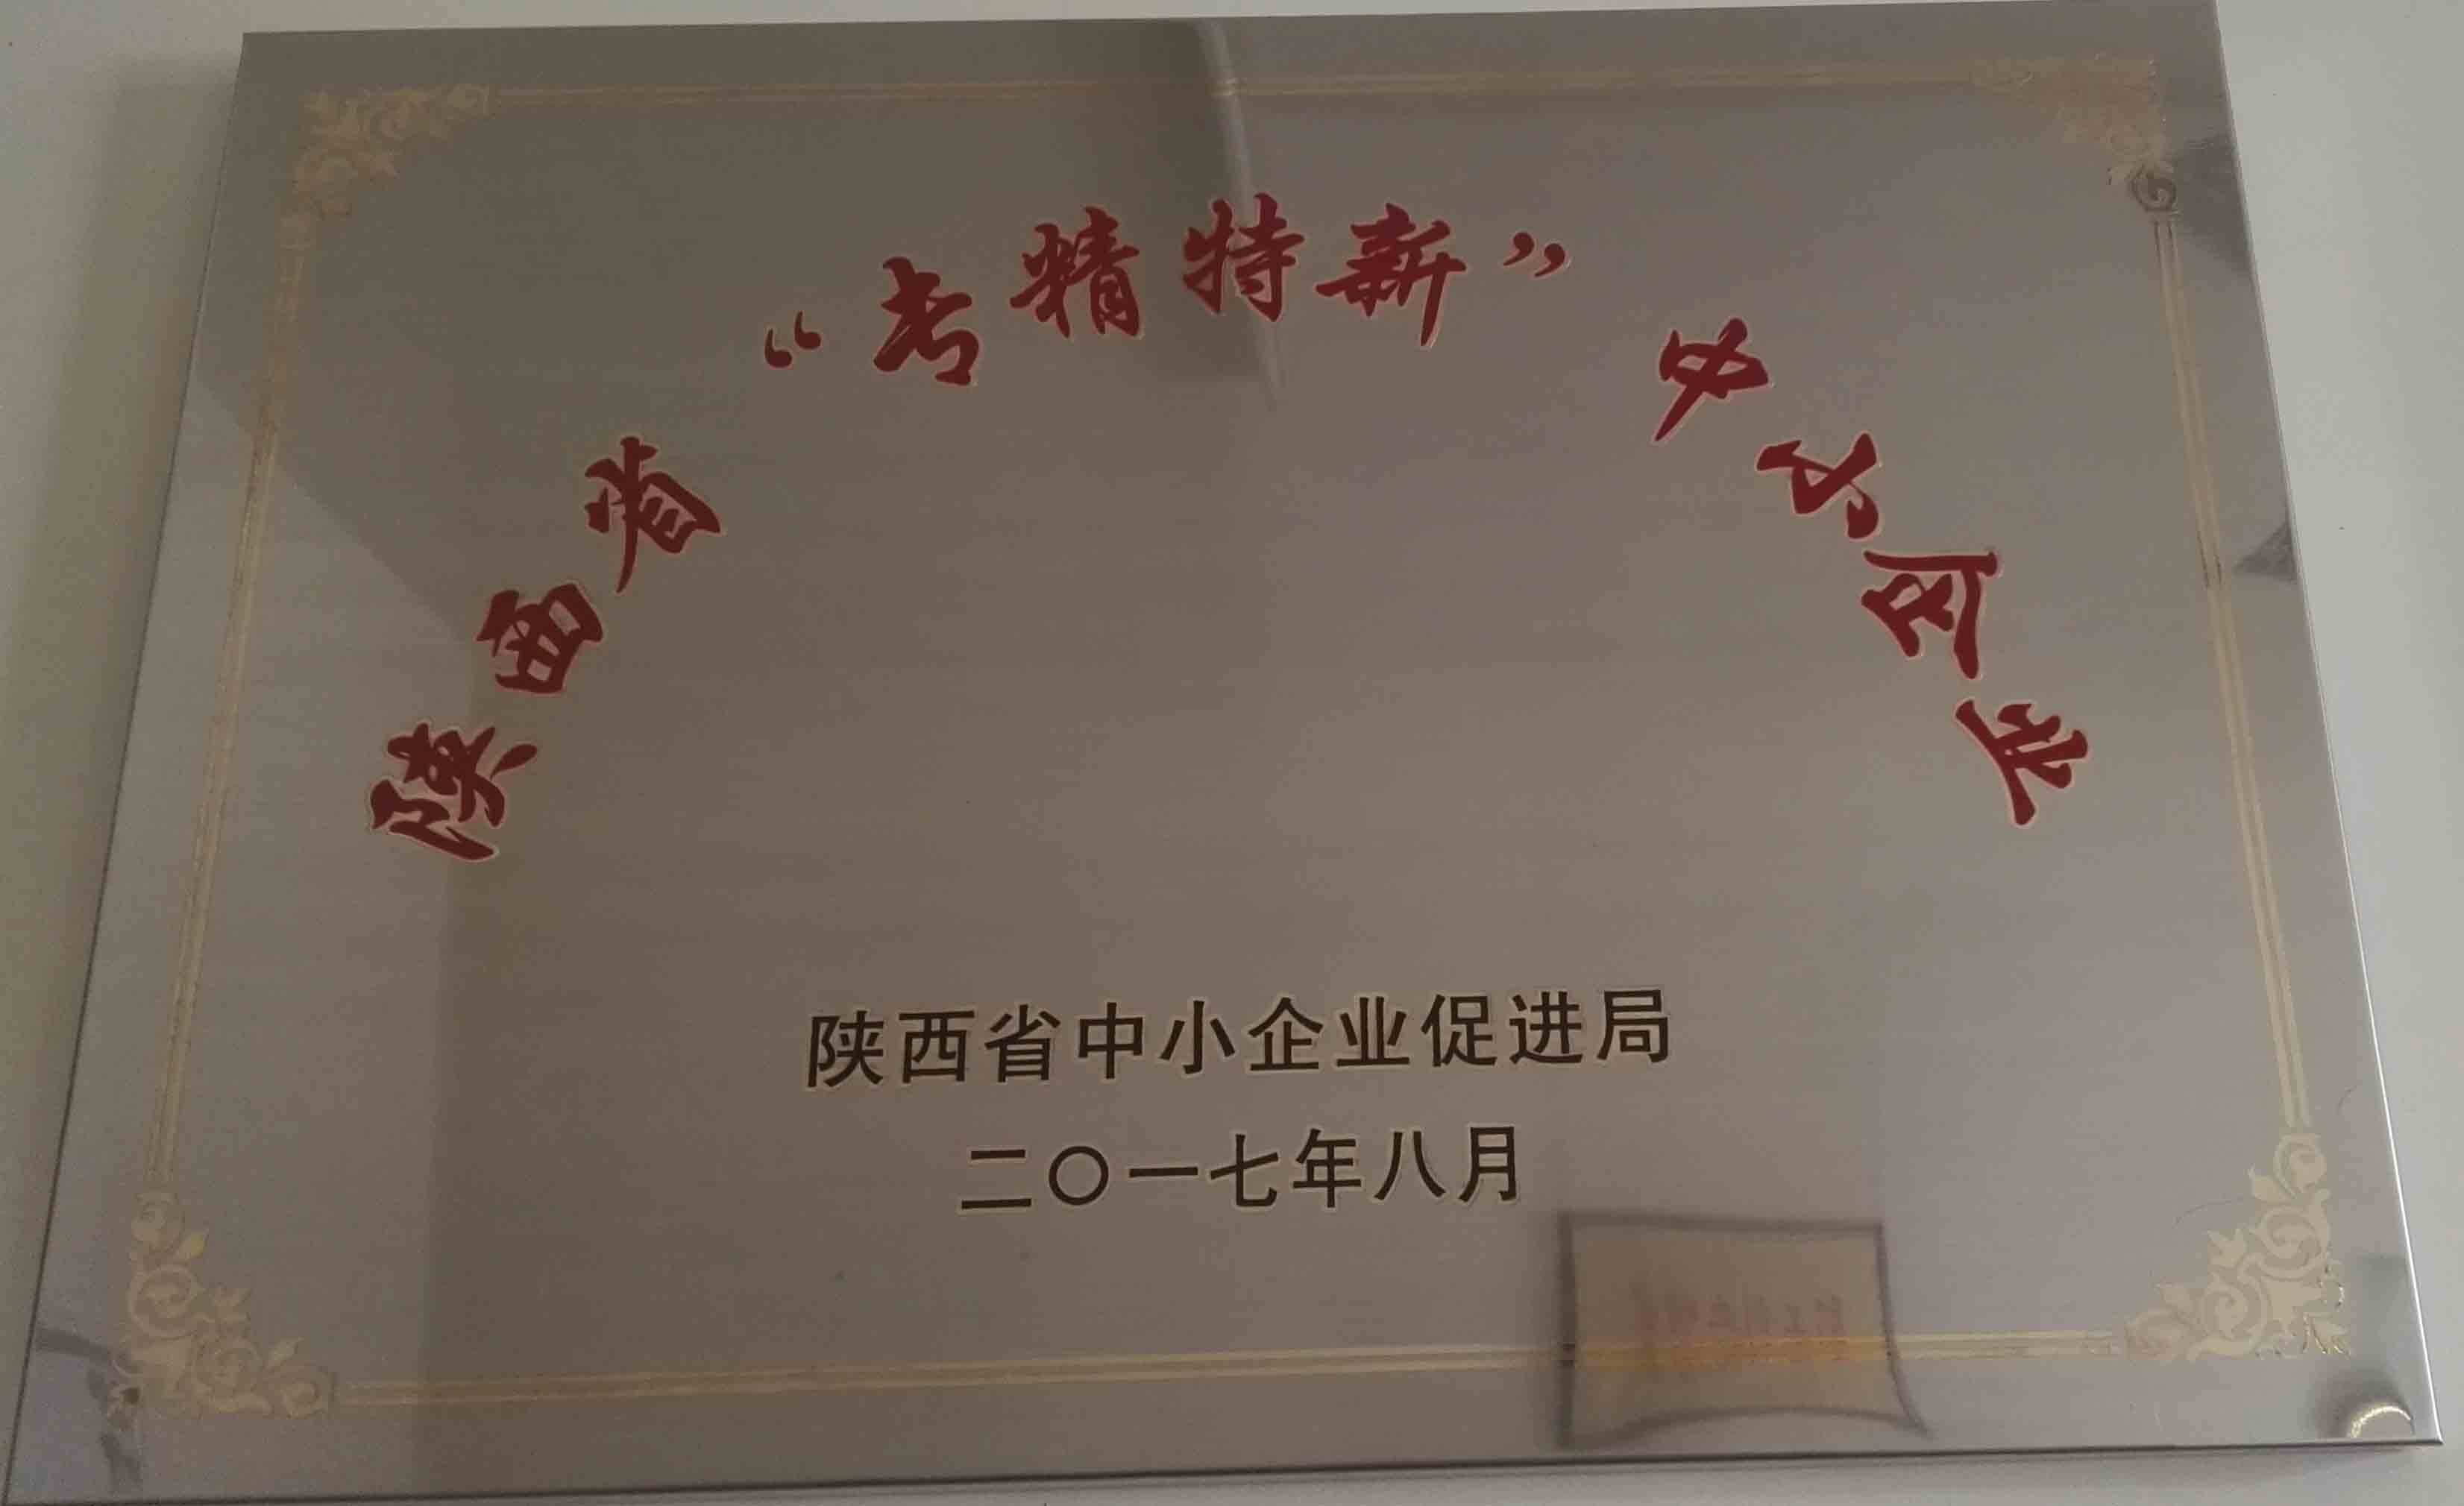 陕西省“专精特新”中小企业
陕西省中小企业促进局
二〇一七年八月